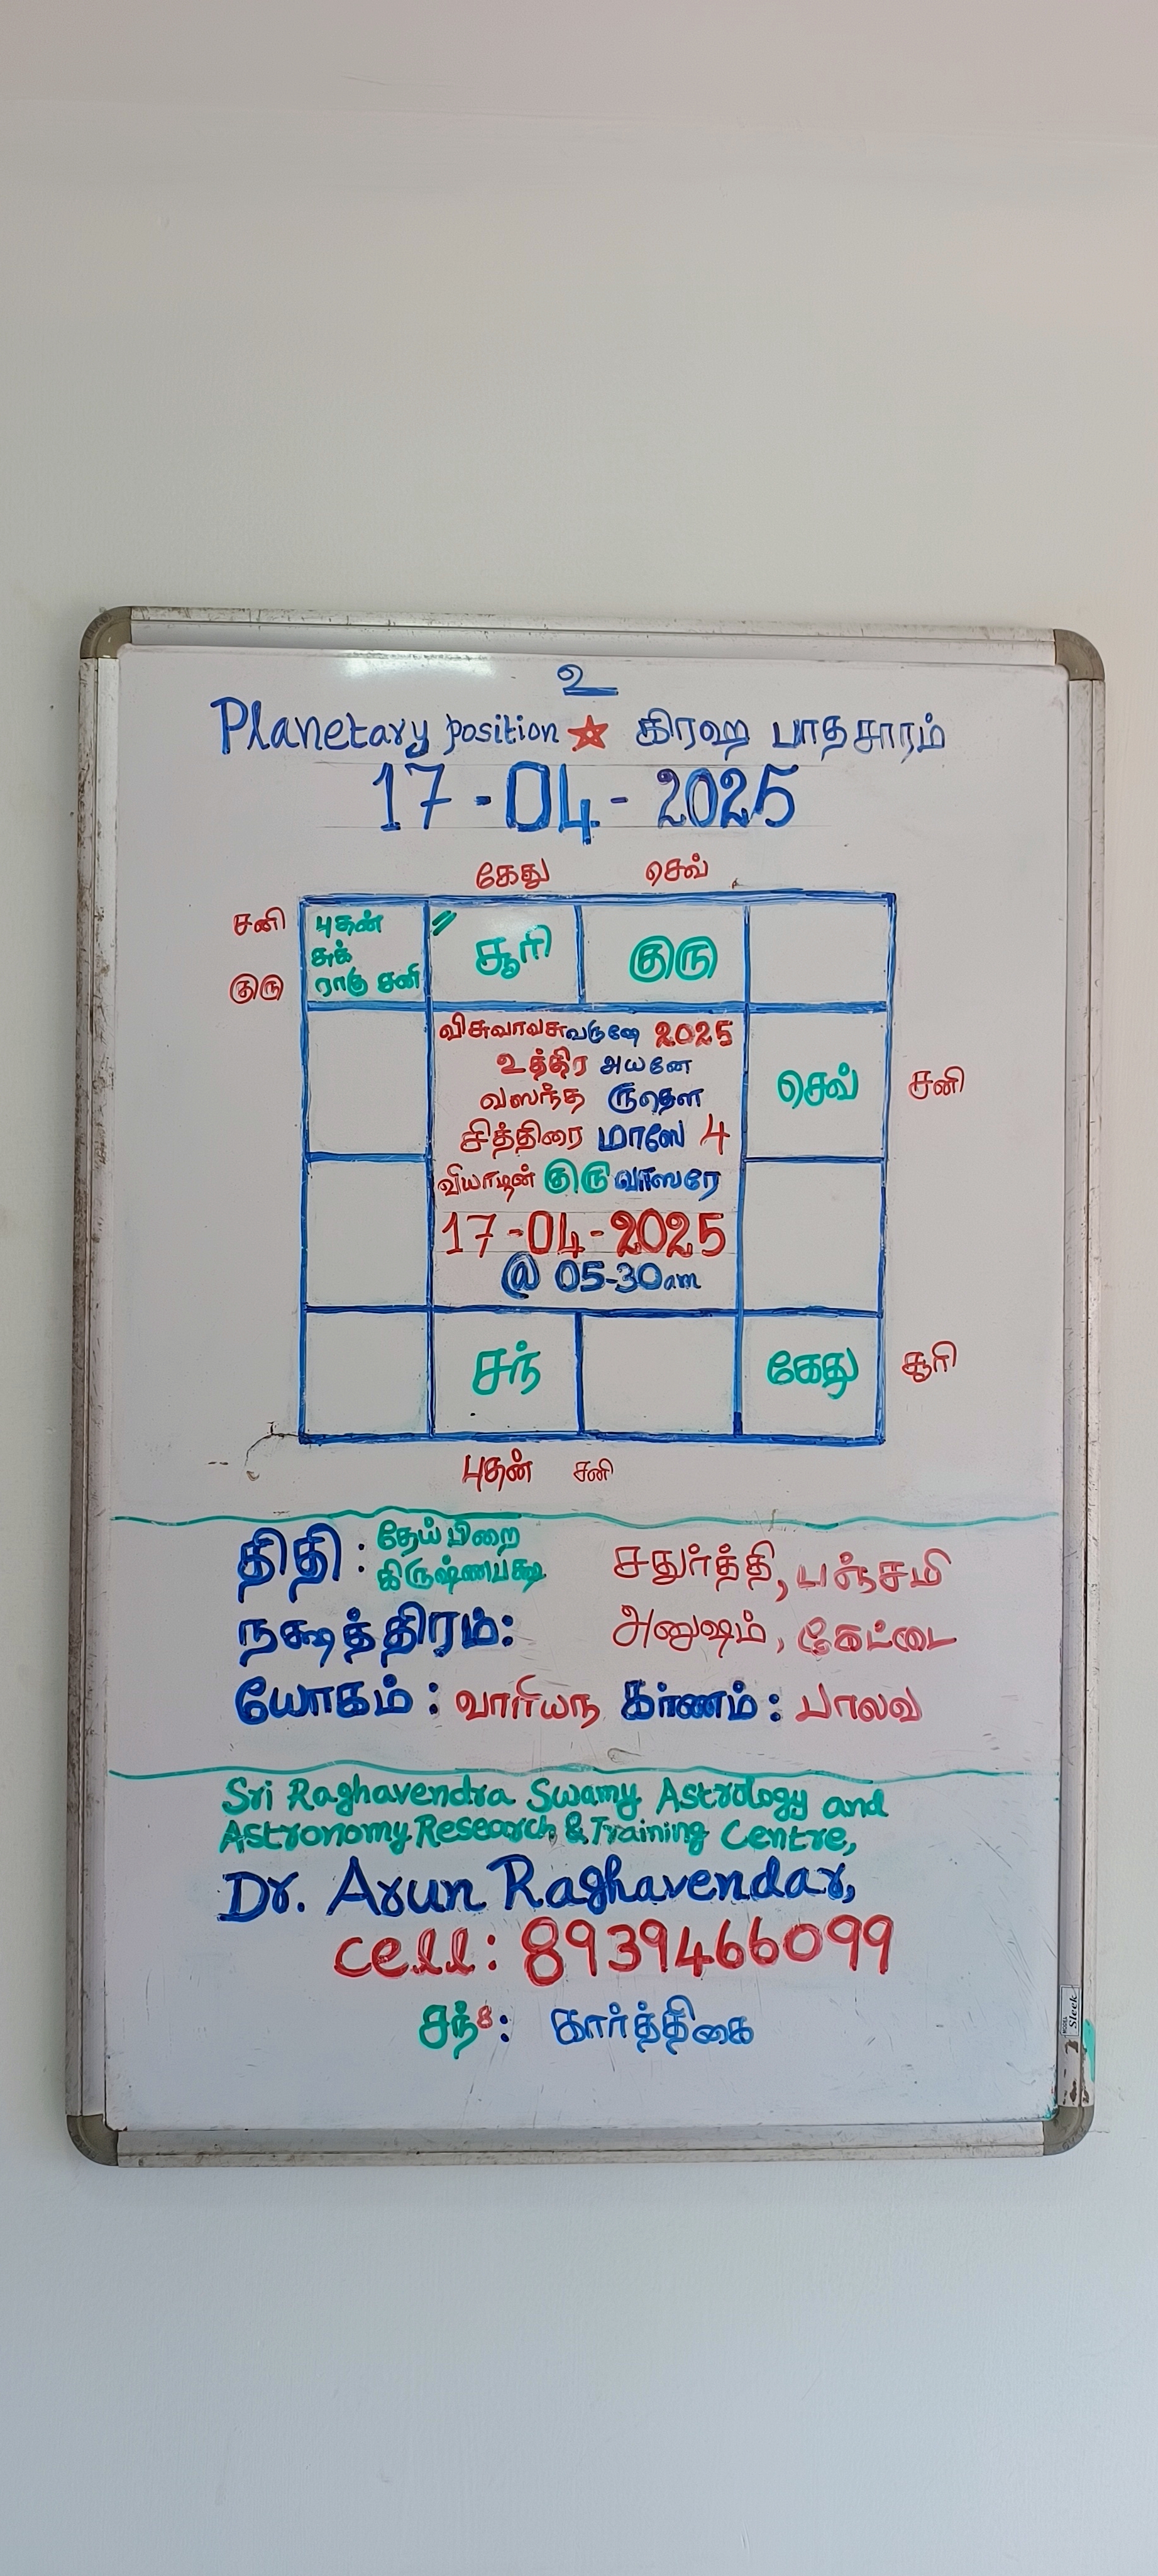 உ
Planetary position ★ கிரஹ பாதசாரம்
17-04-2025
கேது செவ்
சனி புதன் " சூரி குரு
சுக்
குரு ராகு சனி
விசுவாவசுவருஷே 2025
உத்திர அயனே
வஸந்த ருதௌ
செவ் சனி
சித்திரை மாஸே 4
வியாழன் குரு வாஸரே
17-04-2025
@ 05-30am
சந் கேது சூரி
புதன் சனி
திதி : தேய்பிறை
கிருஷ்ணபக்ஷ சதுர்த்தி, பஞ்சமி
நக்ஷத்திரம்: அனுஷம், கேட்டை
யோகம் : வாரியந கர்ணம் : பாலவ
Sri Raghavendra Swamy Astrology and
Astronomy Research & Training Centre,
Dr. Arun Raghavendar,
cell: 8939466099
சந்8: கார்த்திகை
Sleek